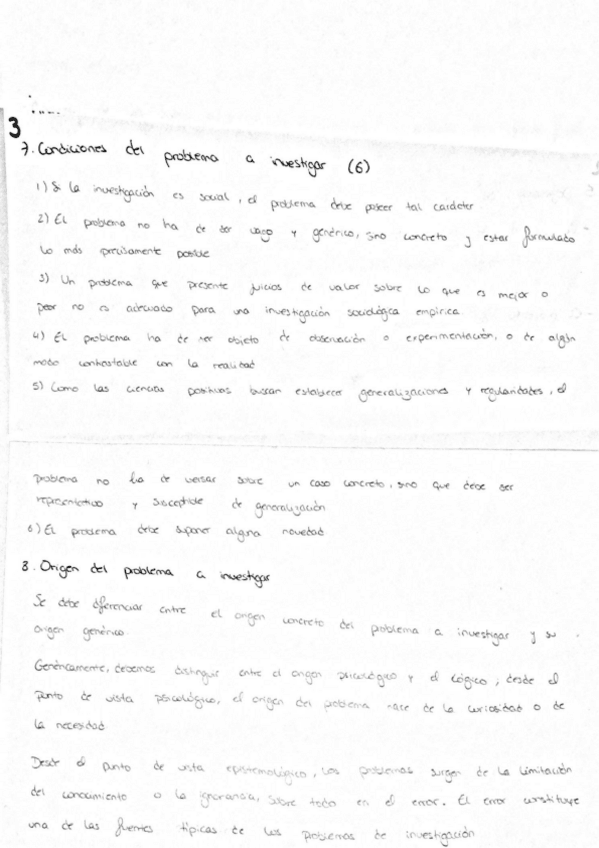 3
7. Condiciones del problema a investigar (6)
1) Si la investigación es social, el problema debe poseer tal carácter
2) El problema no ha de ser vago y genérico, sino concreto y estar formulado
lo más precisamente posible
3) Un problema que presente juicios de valor sobre lo que es mejor o
peor no es adecuado para una investigación sociológica empírica
4) El problema ha de ser objeto de observación o experimentación, o de algún
modo contrastable con la realidad
5) Como las ciencias positivas buscan establecer generalizaciones y regularidades, el
problema no ha de versar sobre un caso concreto, sino que debe ser
representativo y susceptible de generalización
6) El problema debe suponer alguna novedad
8. Origen del problema a investigar
Se debe diferenciar entre el origen concreto del problema a investigar y su
origen genérico
Genéricamente, debemos distinguir entre el origen psicológico y el lógico; desde el
punto de vista psicológico, el origen del problema nace de la curiosidad o de
la necesidad
Desde el punto de vista epistemológico, los problemas surgen de la limitación
del conocimiento o la ignorancia, sobre todo en el error. El error constituye
una de las fuentes típicas de los problemas de investigación